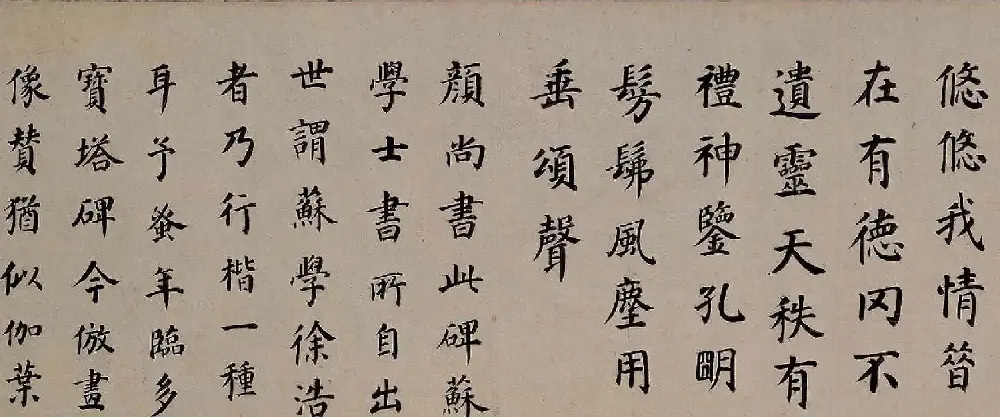 悠悠我情昔
在有德罔不
遺靈天秩有
禮神鑒孔明
髣髴風塵用
垂頌聲
顏尚書此碑蘇
學士書所自出
世謂蘇學徐浩
者乃行楷一種
耳予蚤年臨多
寶塔碑今倣畫
像贊猶似伽葉